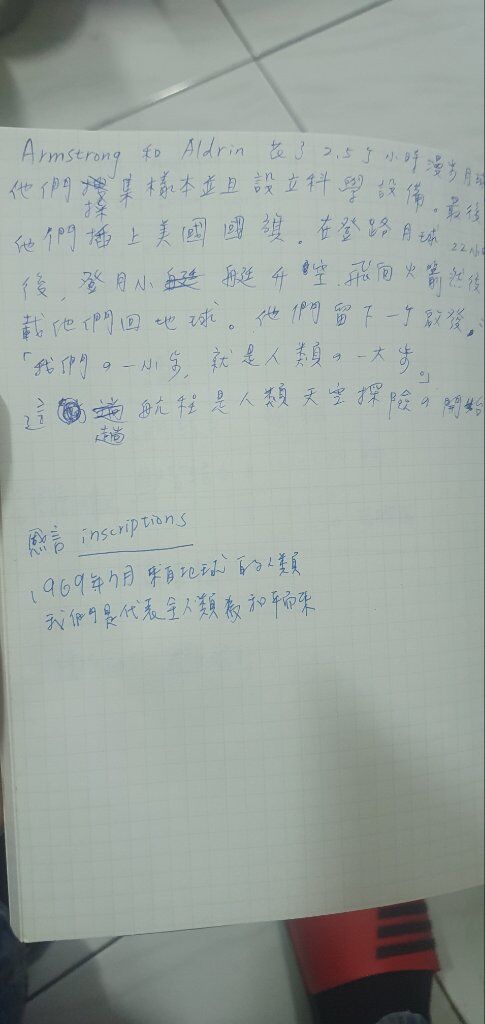 Armstrong 和 Aldrin 花了 2.5个小時漫步月球
他們採集樣本並且設立科學設備。最後
他們插上美國國旗。在登路月球 22小時
後，登月小艇升空，飛向火箭然後
載他們回地球。他們留下一个啟後。
「我們の一小步，就是人類の一大步。」
這趟航程是人類天空探險の開始
感言 inscriptions
1969年7月 來自地球的人類
我們是代表全人類 和平而來